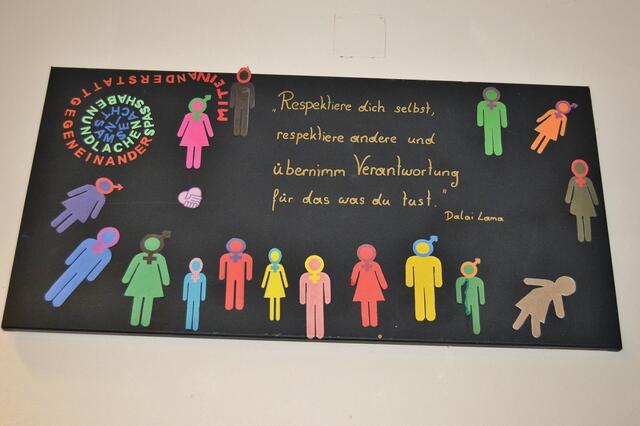 MITEINANDERSTATTGEGENEINANDER
SPASSHABENUNDLACHEN
„Respektiere dich selbst,
respektiere andere und
übernimm Verantwortung
für das was du tust."
Dalai Lama